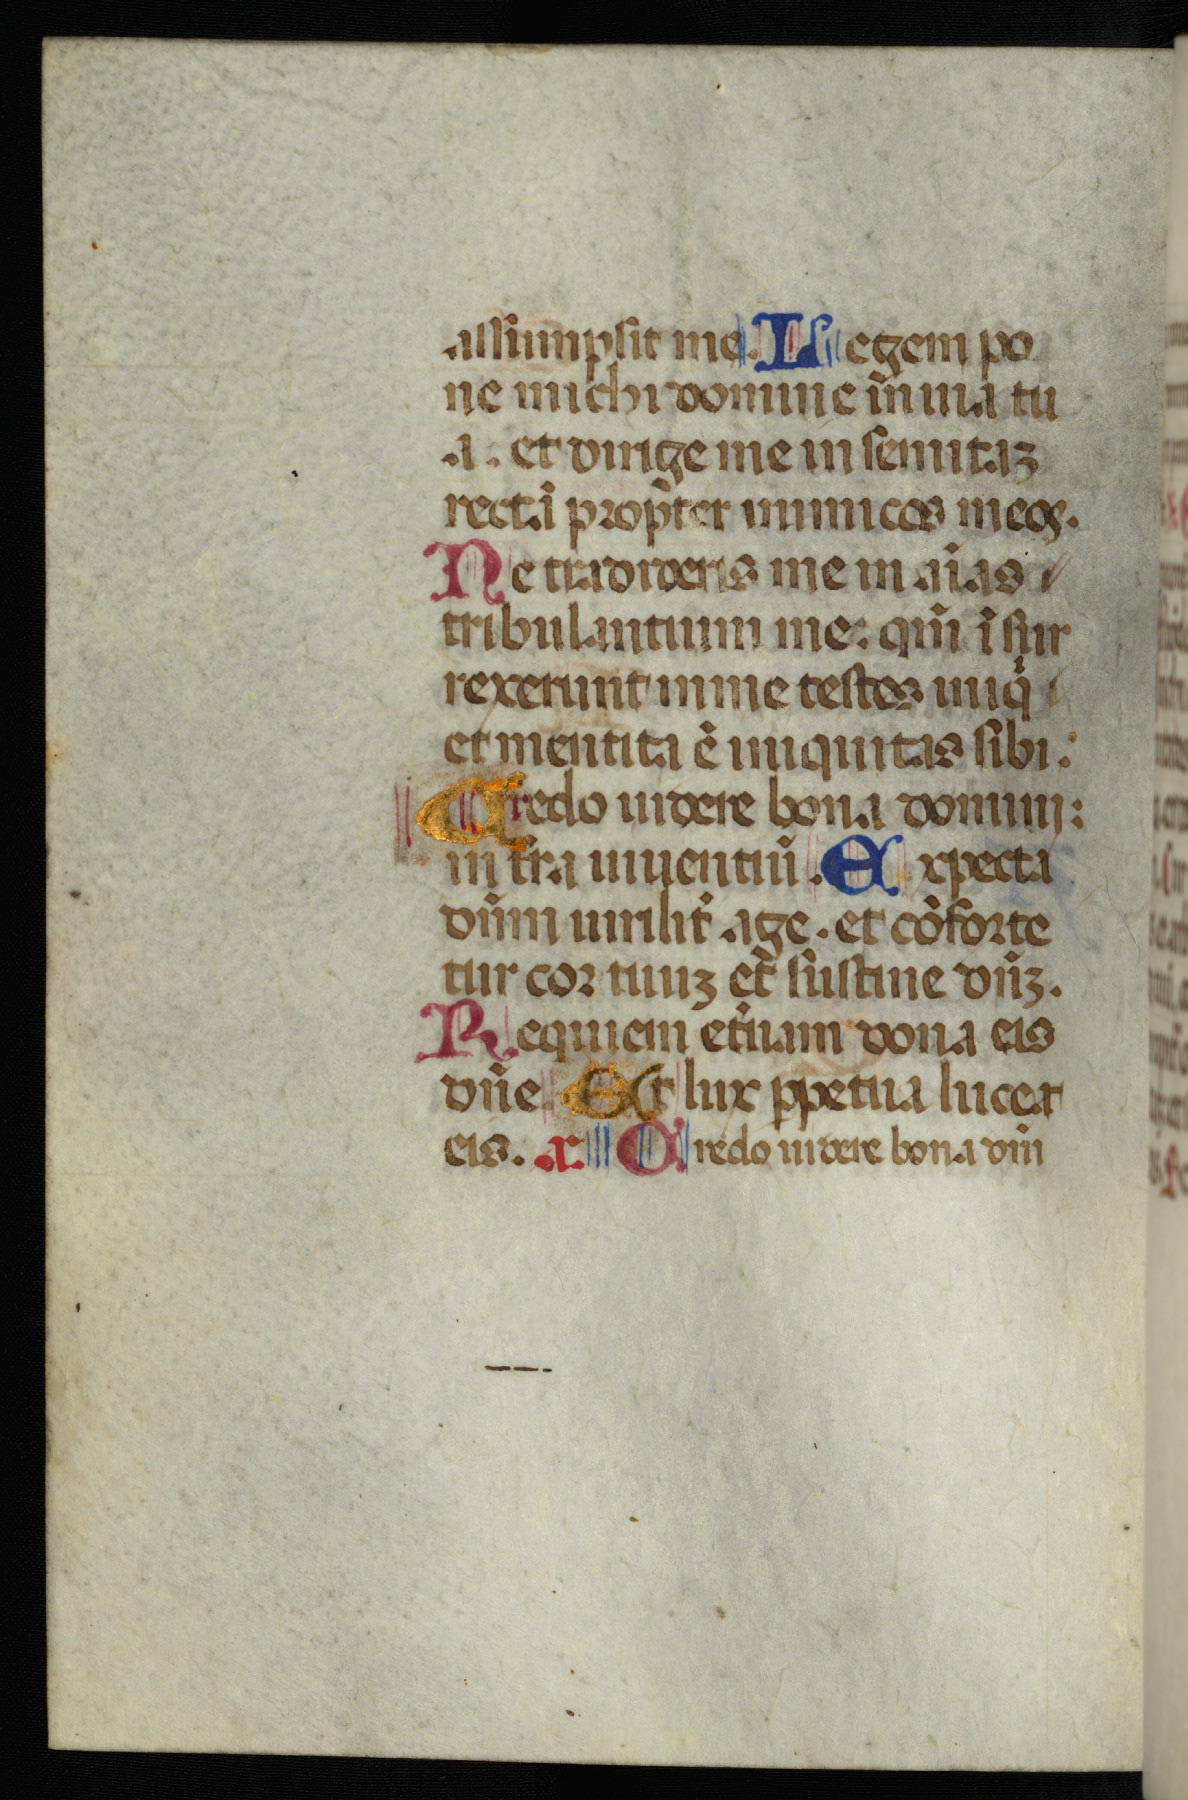 assumpsit me. Legem po
ne michi domine in uia tu
a. et dirige me in semitaz
rectā propter inimicos meos.
Ne tradideris me in aīas
tribulantium me: qm̄ īsur
rexerunt in me testes iniq̄
et mentita ē iniquitas sibi:
Credo uidere bona domini:
in tr̄a uiuentiū. Expecta
dn̄m uirilit̄ age. et cōforte
tur cor tuuz et sustine dn̄z.
Requiem et̄nam dona eis
dn̄e Et lux ppetua luceat
eis. a. Credo uidere bona dn̄i